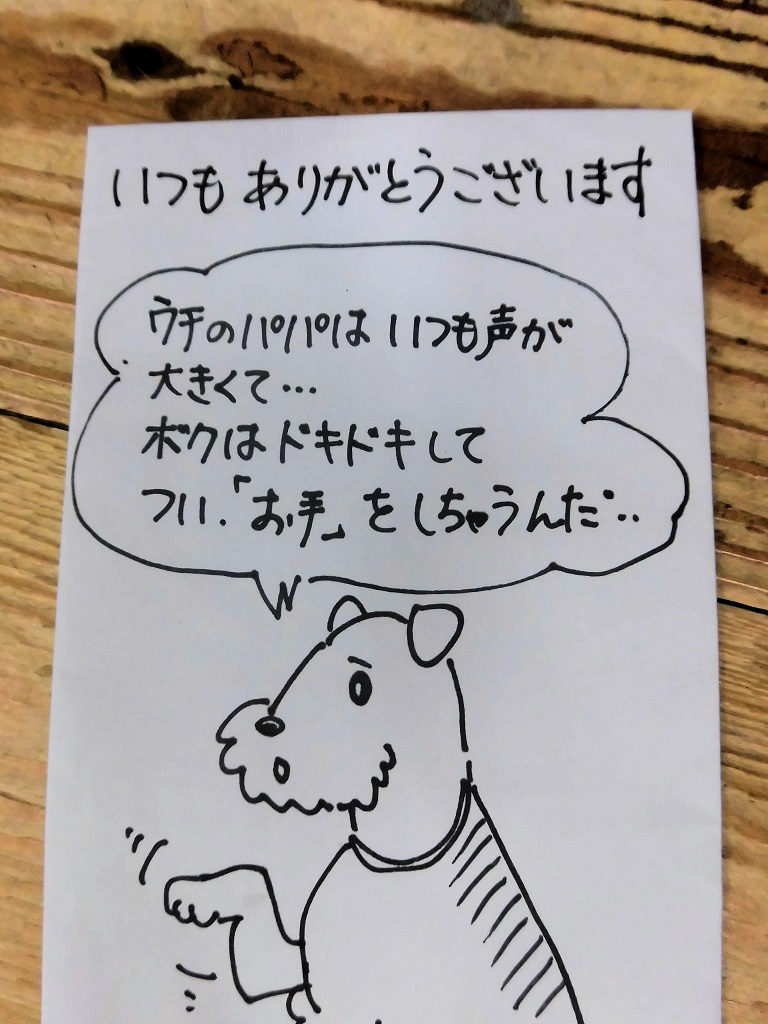 いつも ありがとうございます
ウチのパパは いつも声が
大きくて…
ボクは ドキドキして
つい.「お手」を しちゃうんだ…